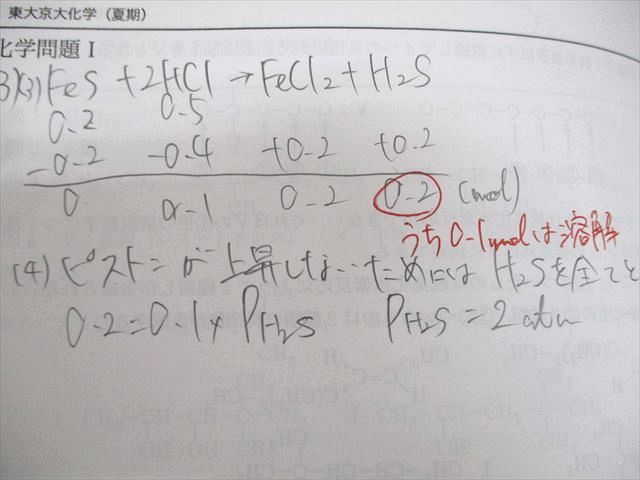 東大京大化学（夏期）
化学問題 I
3)(3) FeS + 2HCl → FeCl2 + H2S
0.2 0.5
-0.2 -0.4 +0.2 +0.2
0 0.1 0.2 0.2 (mol)
うち0.1molは溶解
(4) ピストンが上昇しないためには H2Sを全てと
0.2=0.1× PH2S PH2S = 2atm